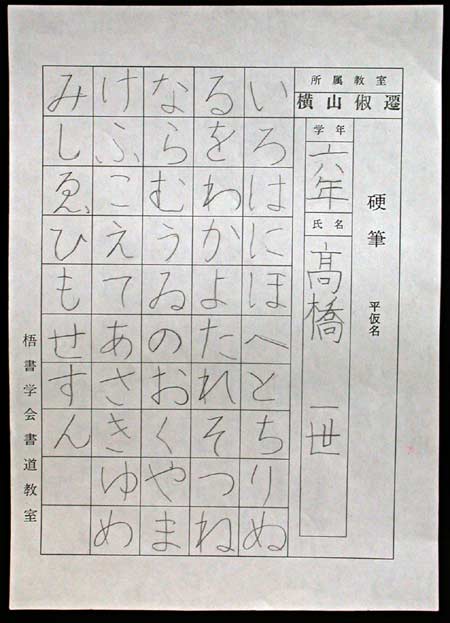 所属教室
横山俶遷
硬筆
平仮名
学年
六年
氏名
髙橋 一世
いろはにほへとちりぬ
るをわかよたれそつね
ならむうゐのおくやま
けふこえてあさきゆめ
みしゑひもせすん
梧書学会書道教室